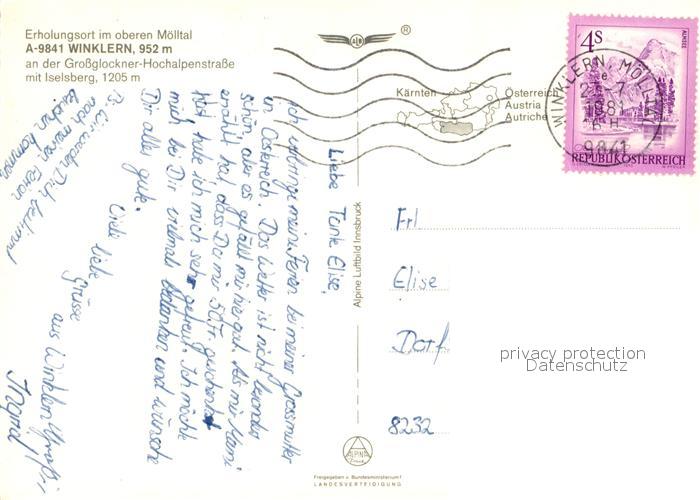 Erholungsort im oberen Mölltal
A-9841 WINKLERN, 952 m
an der Großglockner-Hochalpenstraße
mit Iselsberg, 1205 m
®
Kärnten
Österreich
Austria
Autriche
4S
ALMSEE
REPUBLIK ÖSTERREICH
WINKLERN MÖLLTAL
1981
9841
Liebe Tante Elise,
Ich verbringe meine Ferien bei meiner Grossmutter
in Oesterreich. Das Wetter ist nicht besonders
schön, aber es gefällt mir hier gut. Als mir Mami
erzählt hat, dass Du mir 50 Fr. geschenkt
hast habe ich mich sehr gefreut. Ich möchte
mich bei Dir vielmals bedanken und wünsche
Dir alles gute.
Viele liebe
Grüsse
aus Winklern
Ingrid
Wir werden Dich bestimmt
nach meinen Ferien
besuchen kommen
Alpine Luftbild Innsbruck
Frl.
Elise
Dorf
8232
privacy protection
Datenschutz
ALPINE
Freigegeben v. Bundesministerium f.
LANDESVERTEIDIGUNG